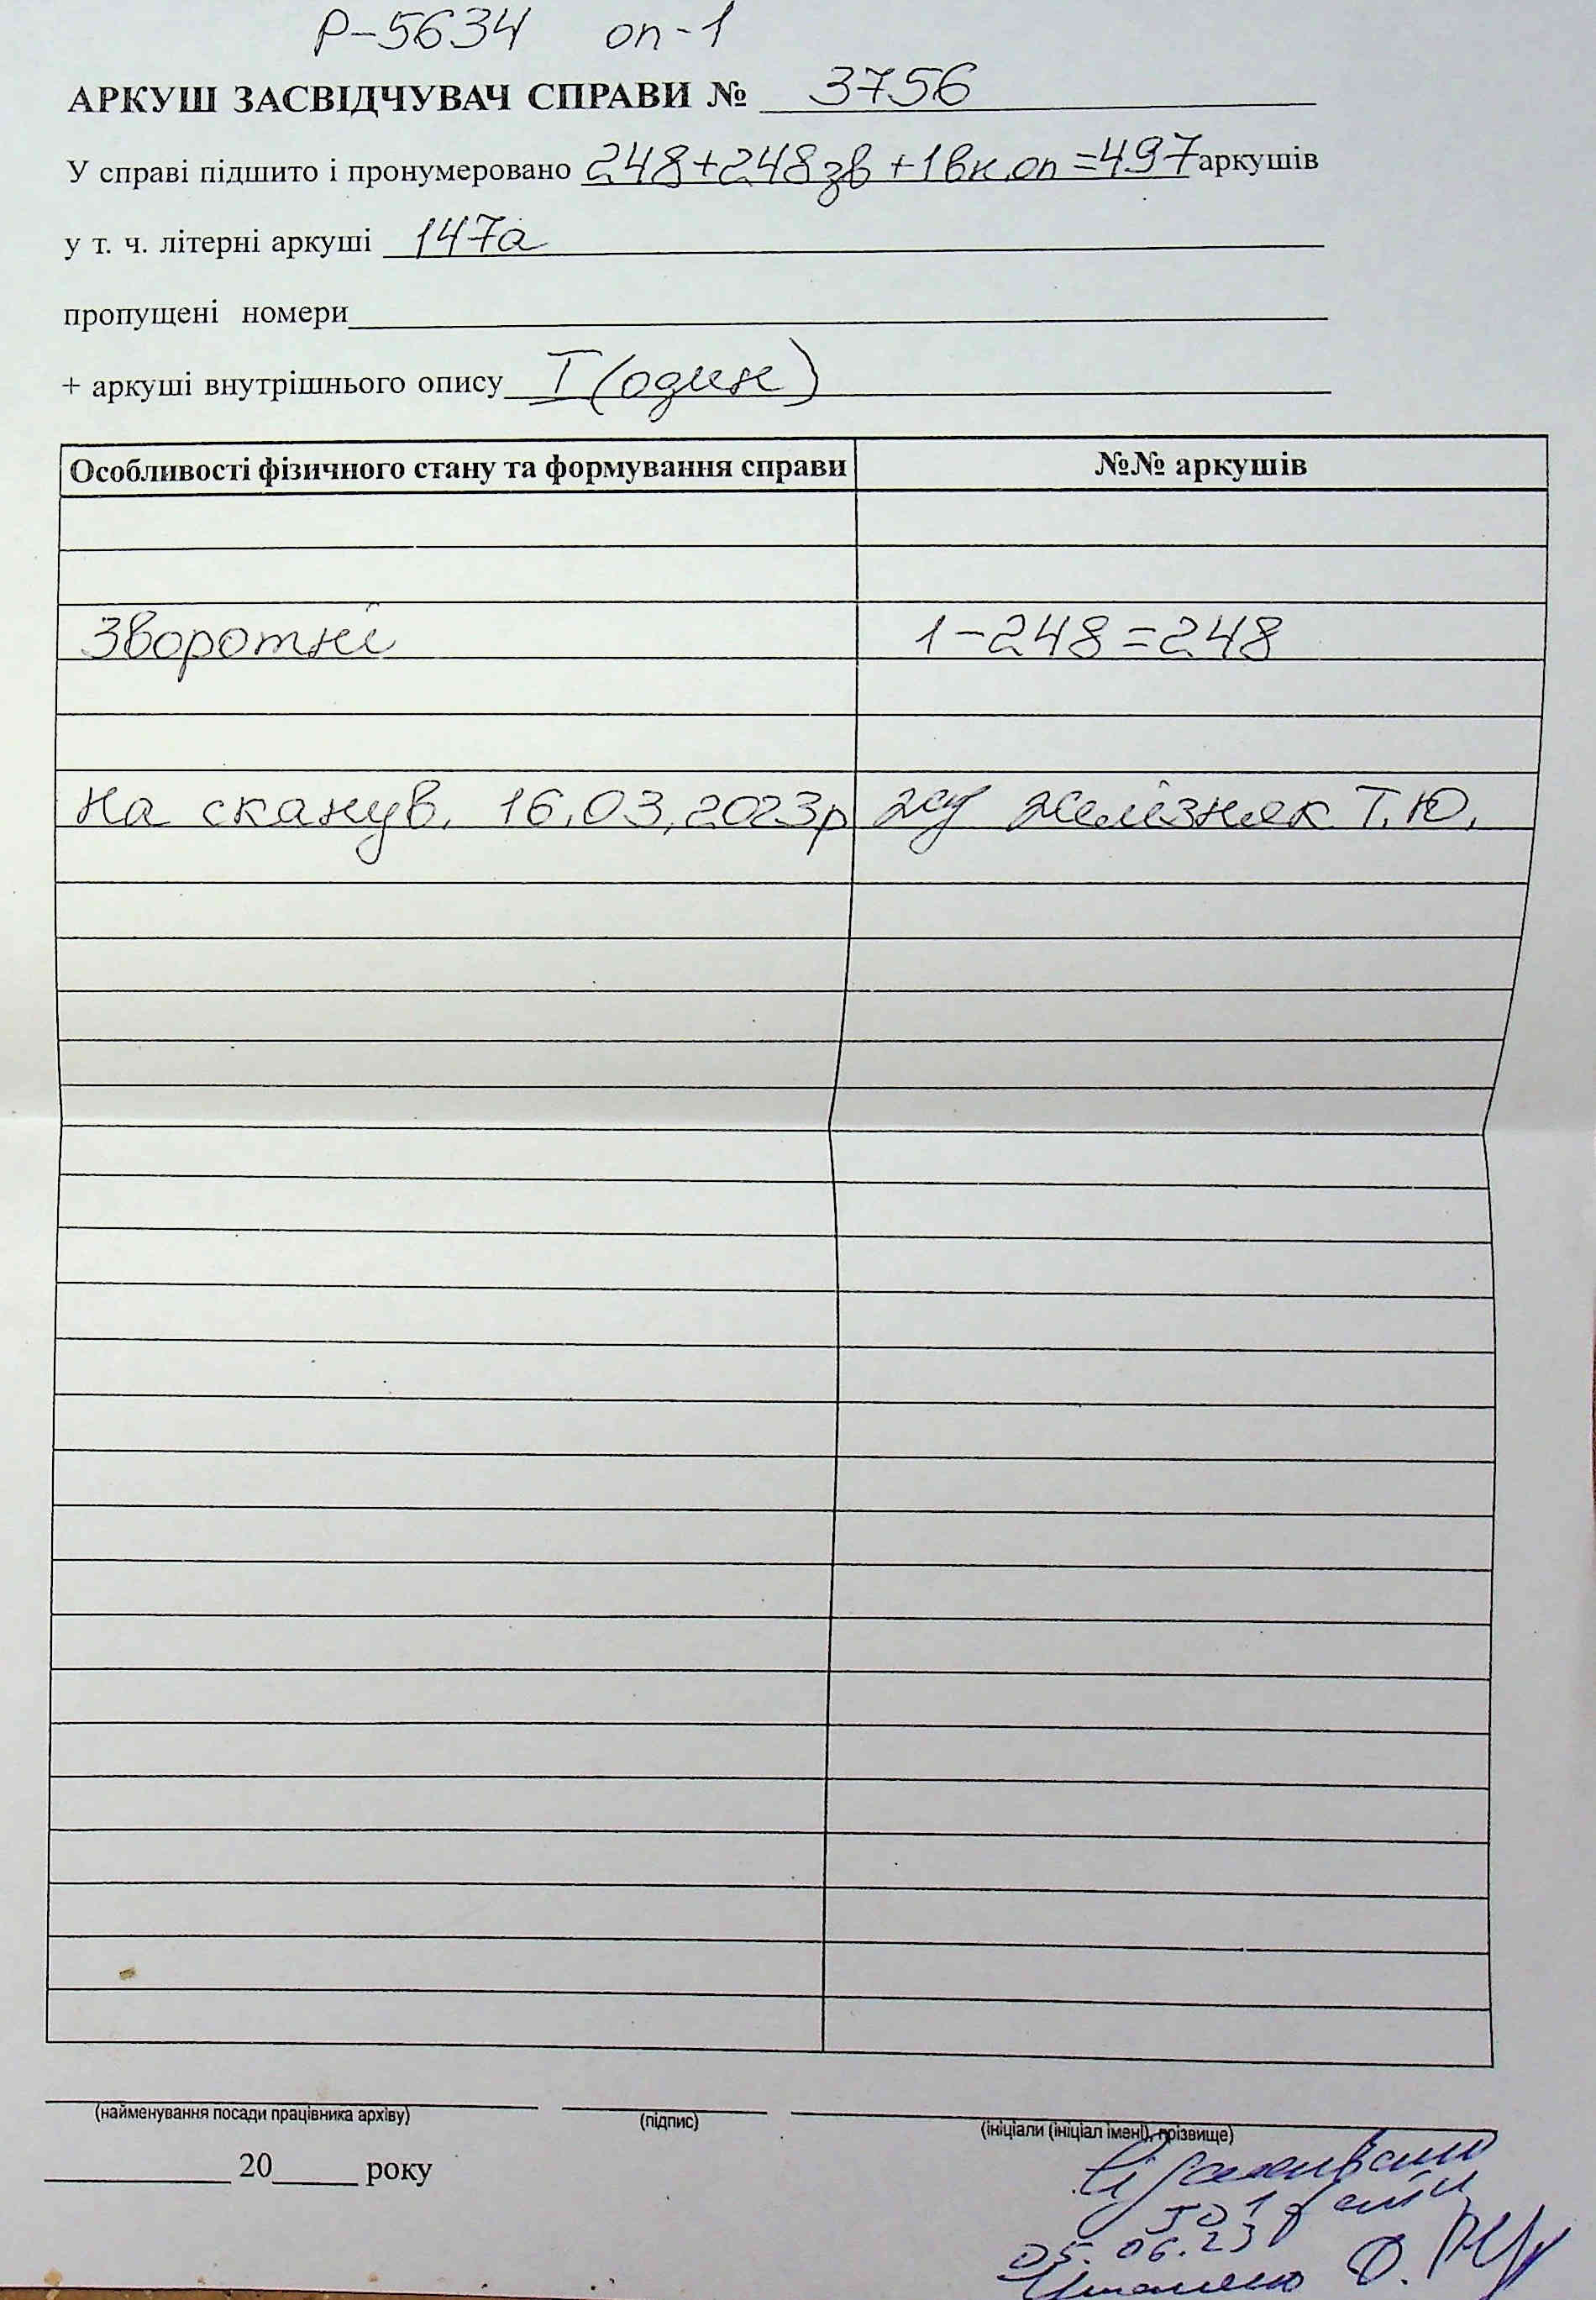 Р-5634 оп-1
АРКУШ ЗАСВІДЧУВАЧ СПРАВИ № 3756
У справі підшито і пронумеровано 248+248зв+1вн.оп=497 аркушів
у т. ч. літерні аркуші 147а
пропущені номери
+ аркуші внутрішнього опису I (один)
Особливості фізичного стану та формування справи №№ аркушів
Зворотні 1-248=248
На сканув. 16.03.2023р Железняк Т.Ю.
(найменування посади працівника архіву) (підпис) (ініціали (ініціал імені), прізвище)
20 року
501
05.06.23